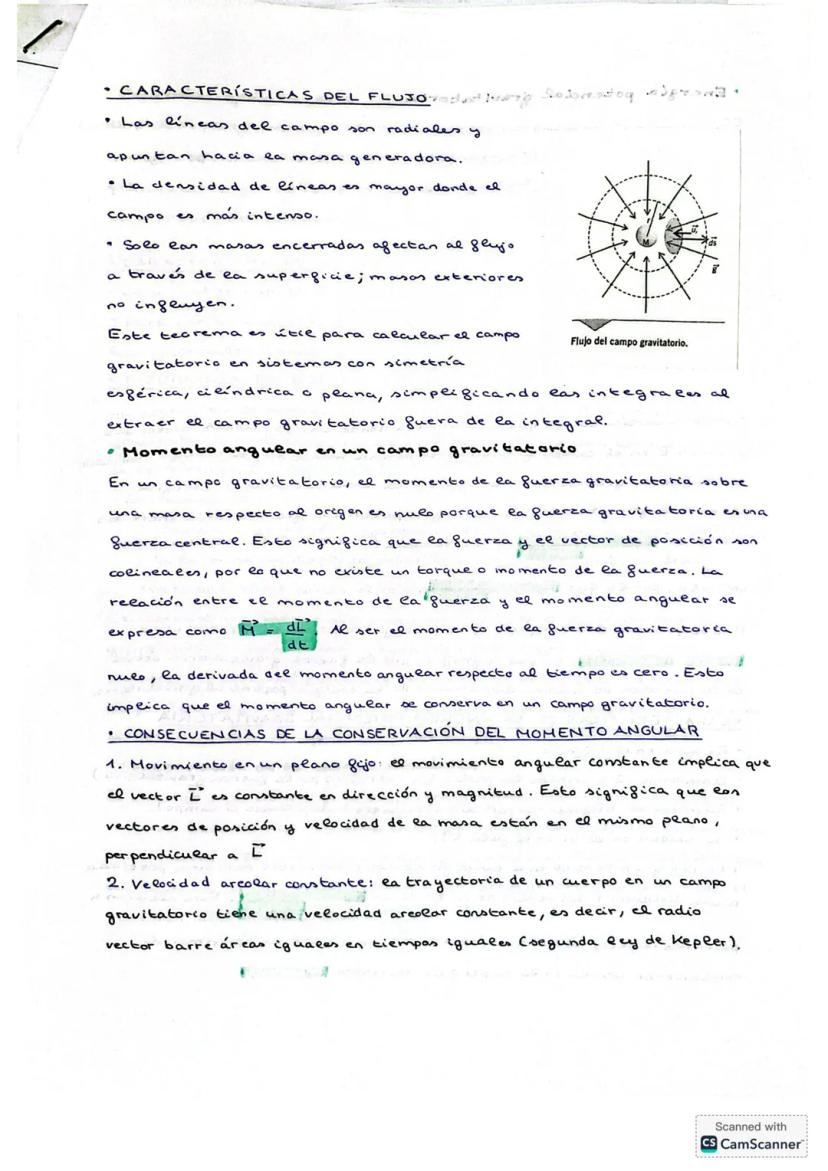 • CARACTERÍSTICAS DEL FLUJO
• Las líneas del campo son radiales y
apuntan hacia la masa generadora.
• La densidad de líneas es mayor donde el
campo es más intenso.
• Solo las masas encerradas afectan al flujo
a través de la superficie; masas exteriores
no influyen.
Este teorema es útil para calcular el campo
gravitatorio en sistemas con simetría
esférica, cilíndrica o plana, simplificando las integrales al
extraer el campo gravitatorio fuera de la integral.
M
r
u⃗r
ds⃗
g⃗
Flujo del campo gravitatorio.
• Momento angular en un campo gravitatorio
En un campo gravitatorio, el momento de la fuerza gravitatoria sobre
una masa respecto al origen es nulo porque la fuerza gravitatoria es una
fuerza central. Esto significa que la fuerza y el vector de posición son
colineales, por lo que no existe un torque o momento de la fuerza. La
relación entre el momento de la fuerza y el momento angular se
expresa como M⃗ = dL⃗/dt. Al ser el momento de la fuerza gravitatoria
nulo, la derivada del momento angular respecto al tiempo es cero. Esto
implica que el momento angular se conserva en un campo gravitatorio.
• CONSECUENCIAS DE LA CONSERVACIÓN DEL MOMENTO ANGULAR
1. Movimiento en un plano fijo: el movimiento angular constante implica que
el vector L⃗ es constante en dirección y magnitud. Esto significa que los
vectores de posición y velocidad de la masa están en el mismo plano,
perpendicular a L⃗
2. Velocidad areolar constante: la trayectoria de un cuerpo en un campo
gravitatorio tiene una velocidad areolar constante, es decir, el radio
vector barre áreas iguales en tiempos iguales (segunda ley de Kepler).
Scanned with
CS CamScanner